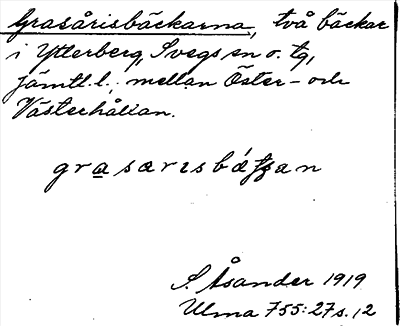 Grasårisbäckarna, två bäckar
i Ytterberg, Svegs sn o. tg,
Jämtl. l., mellan Öster- och
Västerhåkan.
S. Åsander 1919
Ulma 755:27 s. 12